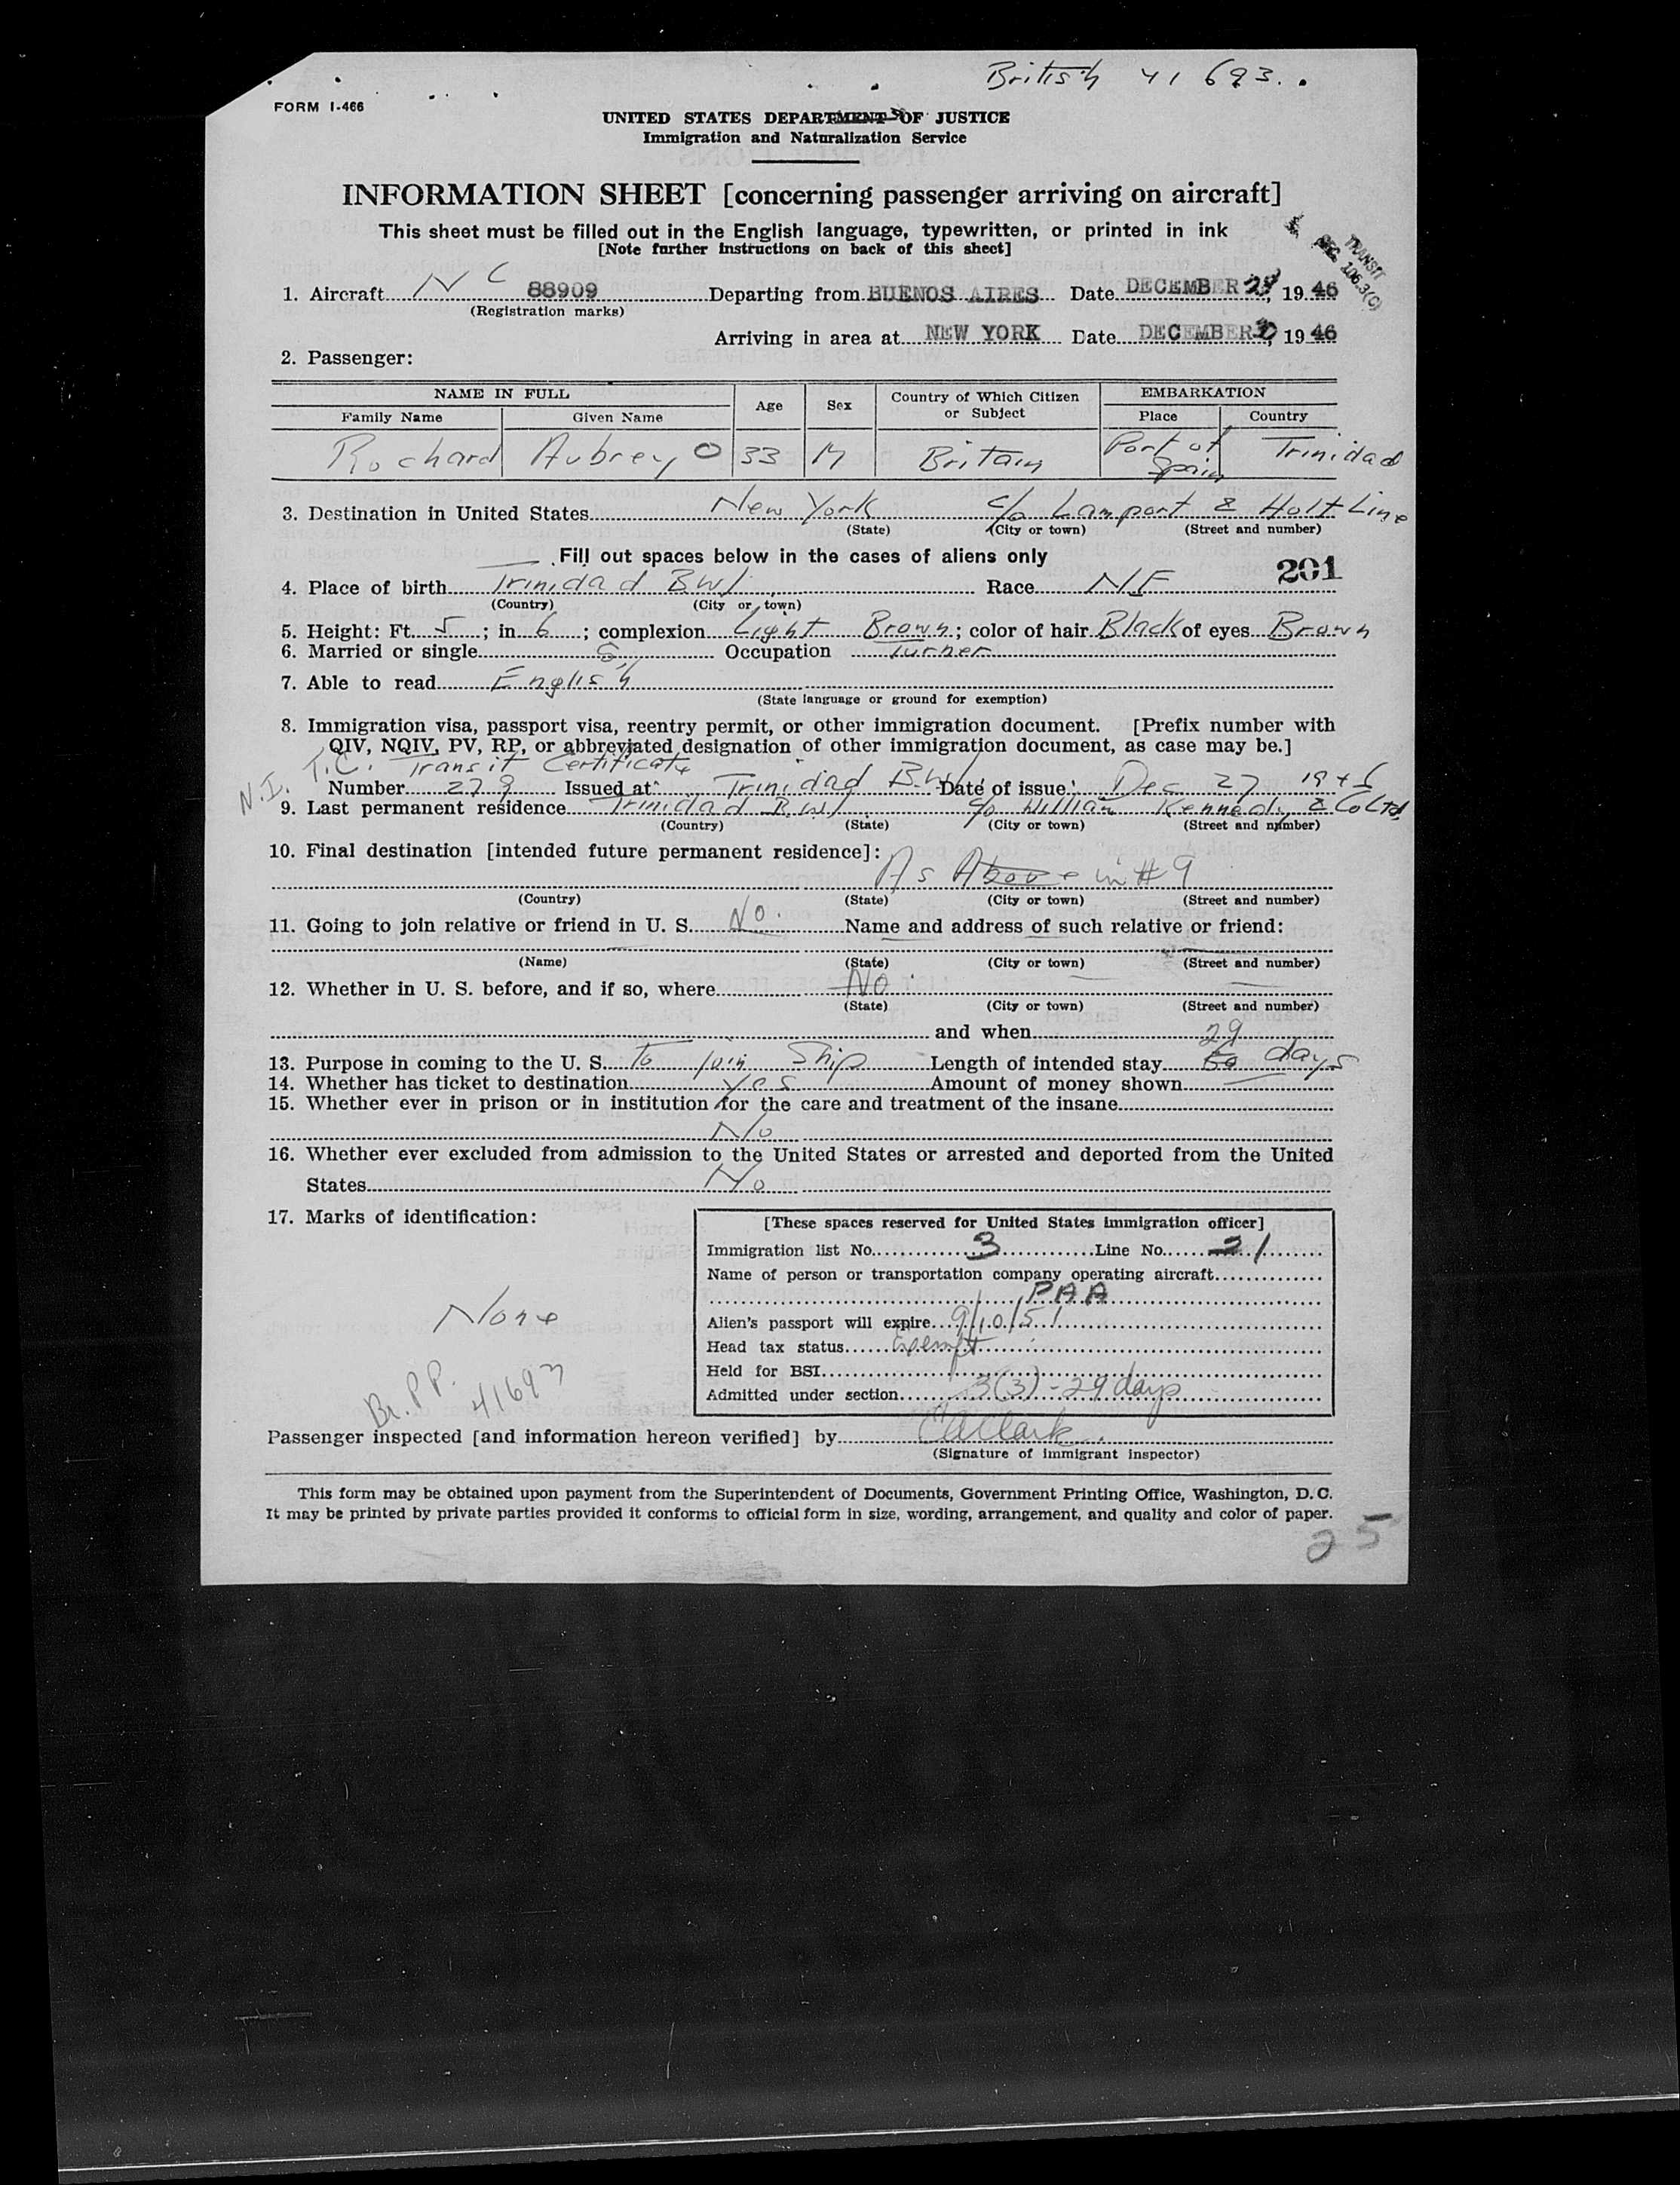 British 41693.
FORM I-466
UNITED STATES DEPARTMENT OF JUSTICE
Immigration and Naturalization Service
INFORMATION SHEET [concerning passenger arriving on aircraft]
This sheet must be filled out in the English language, typewritten, or printed in ink
[Note further instructions on back of this sheet]
TRANSIT
REG. 106.3(C)
1. Aircraft NC 88909 Departing from BUENOS AIRES Date DECEMBER 28, 1946
(Registration marks)
Arriving in area at NEW YORK Date DECEMBER 30, 1946
2. Passenger:
NAME IN FULL Age Sex Country of Which Citizen or Subject EMBARKATION
Family Name Given Name Place Country
Rochard Aubrey O 33 M Britain Port of Spain Trinidad
3. Destination in United States New York c/o Lamport & Holt Line
(State) (City or town) (Street and number)
Fill out spaces below in the cases of aliens only
201
4. Place of birth Trinidad BWI Race
(Country) (City or town)
5. Height: Ft. 5; in 6; complexion Light Brown; color of hair Black of eyes Brown
6. Married or single S. Occupation Turner
7. Able to read English
(State language or ground for exemption)
8. Immigration visa, passport visa, reentry permit, or other immigration document. [Prefix number with
QIV, NQIV, PV, RP, or abbreviated designation of other immigration document, as case may be.]
N.I. T.C. Transit Certificate
Number 279 Issued at Trinidad BWI Date of issue Dec 27 1946
9. Last permanent residence Trinidad B.W.I c/o William Kennedy & Co Ltd,
(Country) (State) (City or town) (Street and number)
10. Final destination [intended future permanent residence]:
As Above in #9
(Country) (State) (City or town) (Street and number)
11. Going to join relative or friend in U. S. No. Name and address of such relative or friend:
(Name) (State) (City or town) (Street and number)
12. Whether in U. S. before, and if so, where No.
(State) (City or town) (Street and number)
and when
29
13. Purpose in coming to the U. S. To join Ship Length of intended stay 60 days
14. Whether has ticket to destination Yes Amount of money shown
15. Whether ever in prison or in institution for the care and treatment of the insane
No
16. Whether ever excluded from admission to the United States or arrested and deported from the United
States No
17. Marks of identification:
None
Br. P.P. 41693
[These spaces reserved for United States immigration officer]
Immigration list No. 3 Line No. 21
Name of person or transportation company operating aircraft
PAA
Alien's passport will expire 9/10/51
Head tax status Exempt
Held for BSI
Admitted under section 3(3)-29 days
Passenger inspected [and information hereon verified] by Clark
(Signature of immigrant inspector)
This form may be obtained upon payment from the Superintendent of Documents, Government Printing Office, Washington, D. C.
It may be printed by private parties provided it conforms to official form in size, wording, arrangement, and quality and color of paper.
25